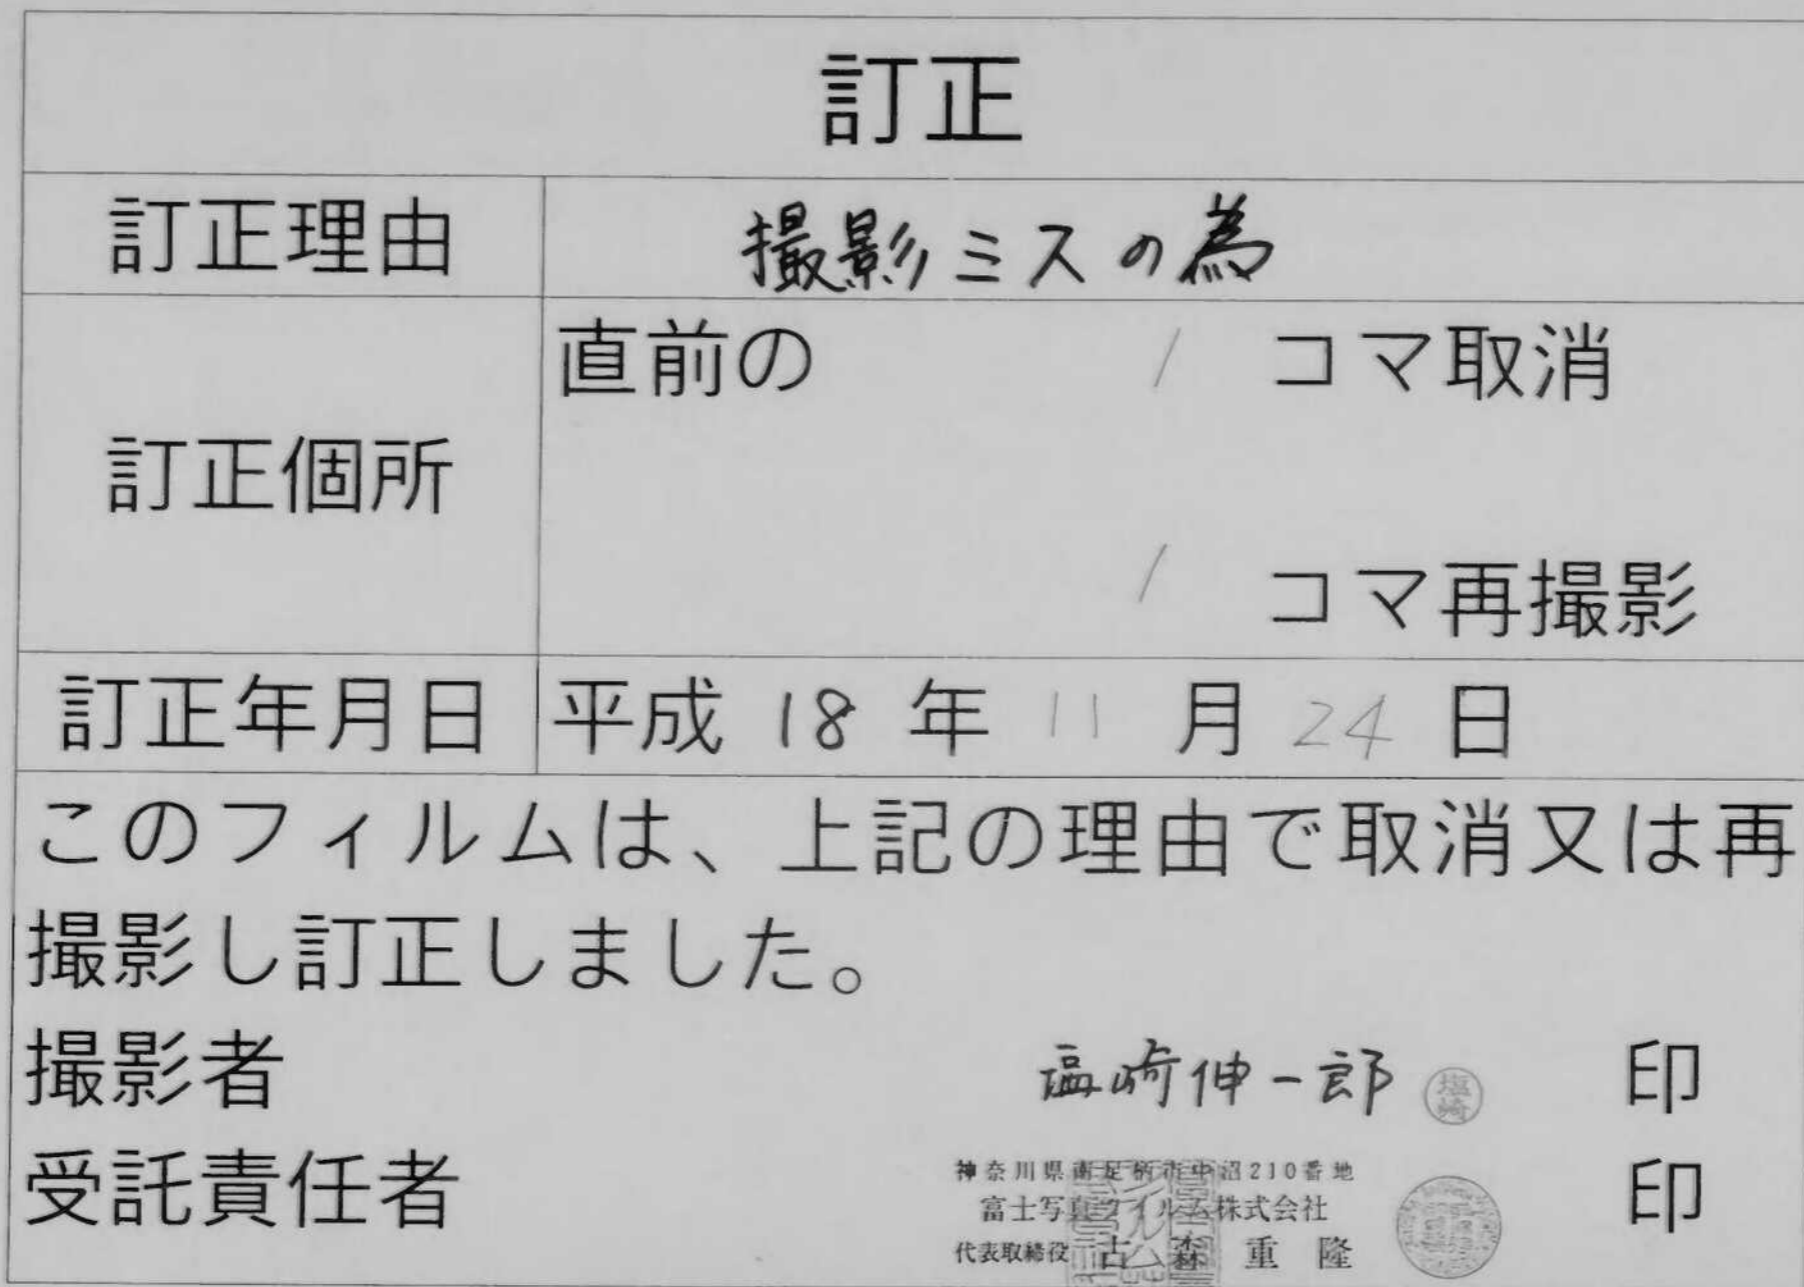 訂正
訂正理由 撮影ミスの為
訂正個所 直前の 1 コマ取消
1 コマ再撮影
訂正年月日 平成 18 年 11 月 24 日
このフィルムは、上記の理由で取消又は再
撮影し訂正しました。
撮影者 塩崎伸一郎 塩崎 印
受託責任者 印
神奈川県南足柄市中沼210番地
富士写真フイルム株式会社
代表取締役 古森重隆